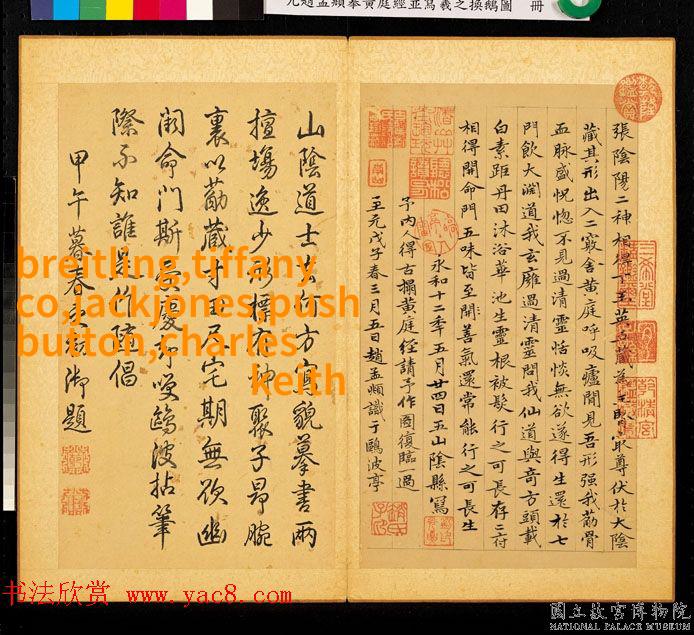 元趙孟頫摹黃庭經並寫羲之換鵝圖 冊
張陰陽二神相得下玉英五藏為主腎最尊伏於大陰
藏其形出入二竅舍黃庭呼吸廬間見吾形强我筋骨
血脉盛怳惚不見過清靈恬惔無欲遂得生還於七
門飲大淵道我玄雍過清靈問我仙道與奇方頭載
白素距丹田沐浴華池生靈根被髮行之可長存二府
相得開命門五味皆至開善氣還常能行之可長生
永和十二年五月廿四日五山陰縣寫
予內得古搨黃庭經請予作圖復臨一過
至元戊子春三月五日趙孟頫識于鷗波亭
山陰道士出何方寫貌摹書兩
擅場逸少形標存神聚子昂腕
裏以筋藏寸田尺宅期無欲幽
闕命門斯受慶却笑鷗波拈筆
際不知誰是作誰倡
甲午暮春 御題
breitling,tiffany
co,jackjones,push
button,charles
keith
书法欣赏 www.yac8.com
國立故宮博物院
NATIONAL PALACE MUSEUM